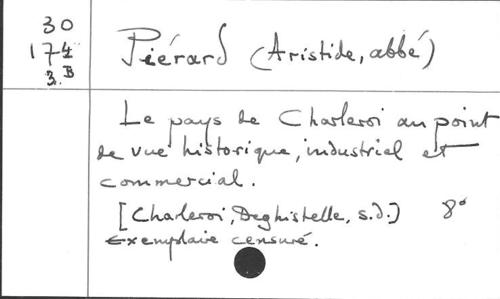 30
174
3.B
Piérard (Aristide, abbé)
Le pays de Charleroi au point
de vue historique, industriel et
commercial.
[Charleroi, Deghistelle, s.d.) 8°
Exemplaire censuré.